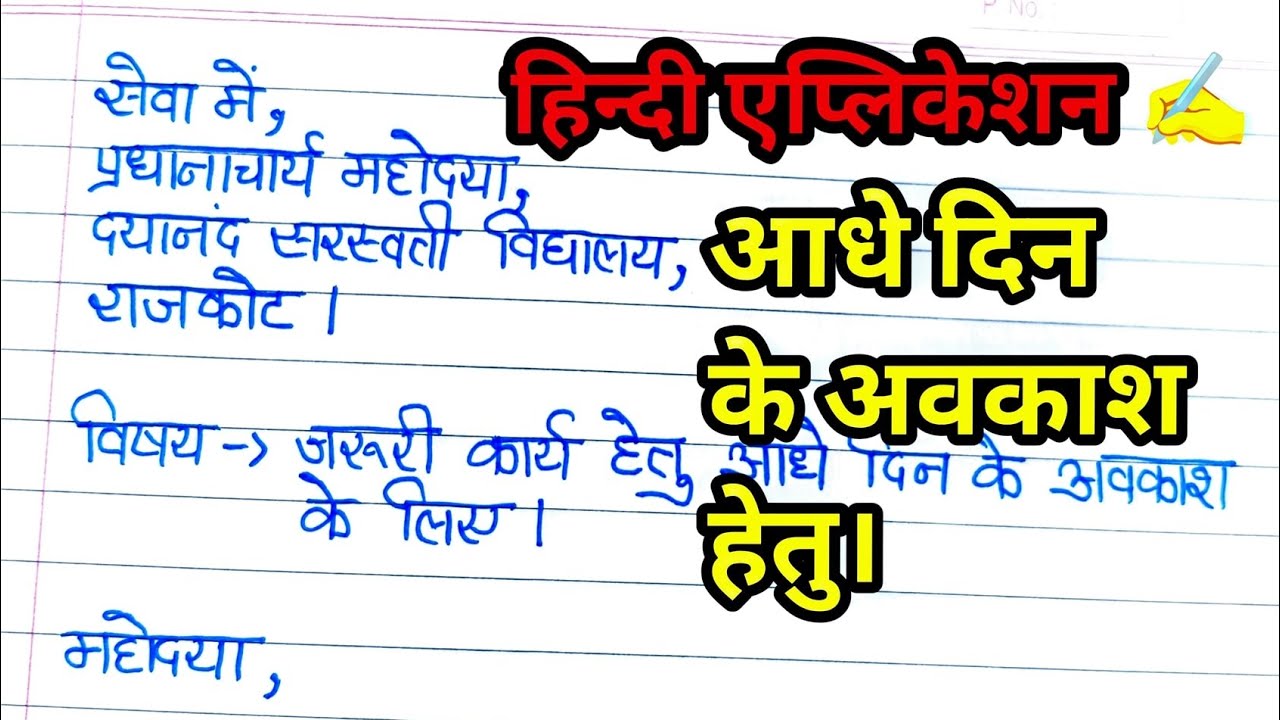 P No
हिन्दी एप्लिकेशन
आधे दिन
के अवकाश
हेतु।
सेवा में,
प्रधानाचार्य महोदया,
दयानंद सरस्वती विद्यालय,
राजकोट।
विषय → ज़रूरी कार्य हेतु आधे दिन के अवकाश
के लिए।
महोदया,